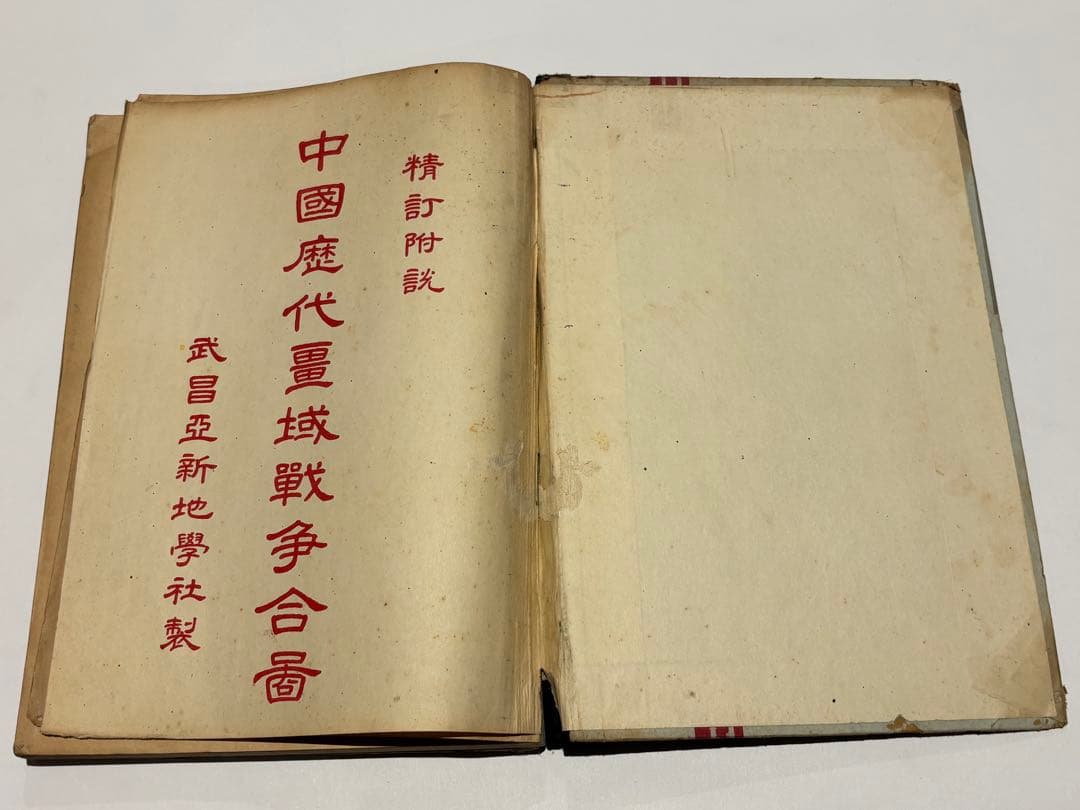 精訂附説
中國歷代畺域戰争合圖
武昌亞新地學社製